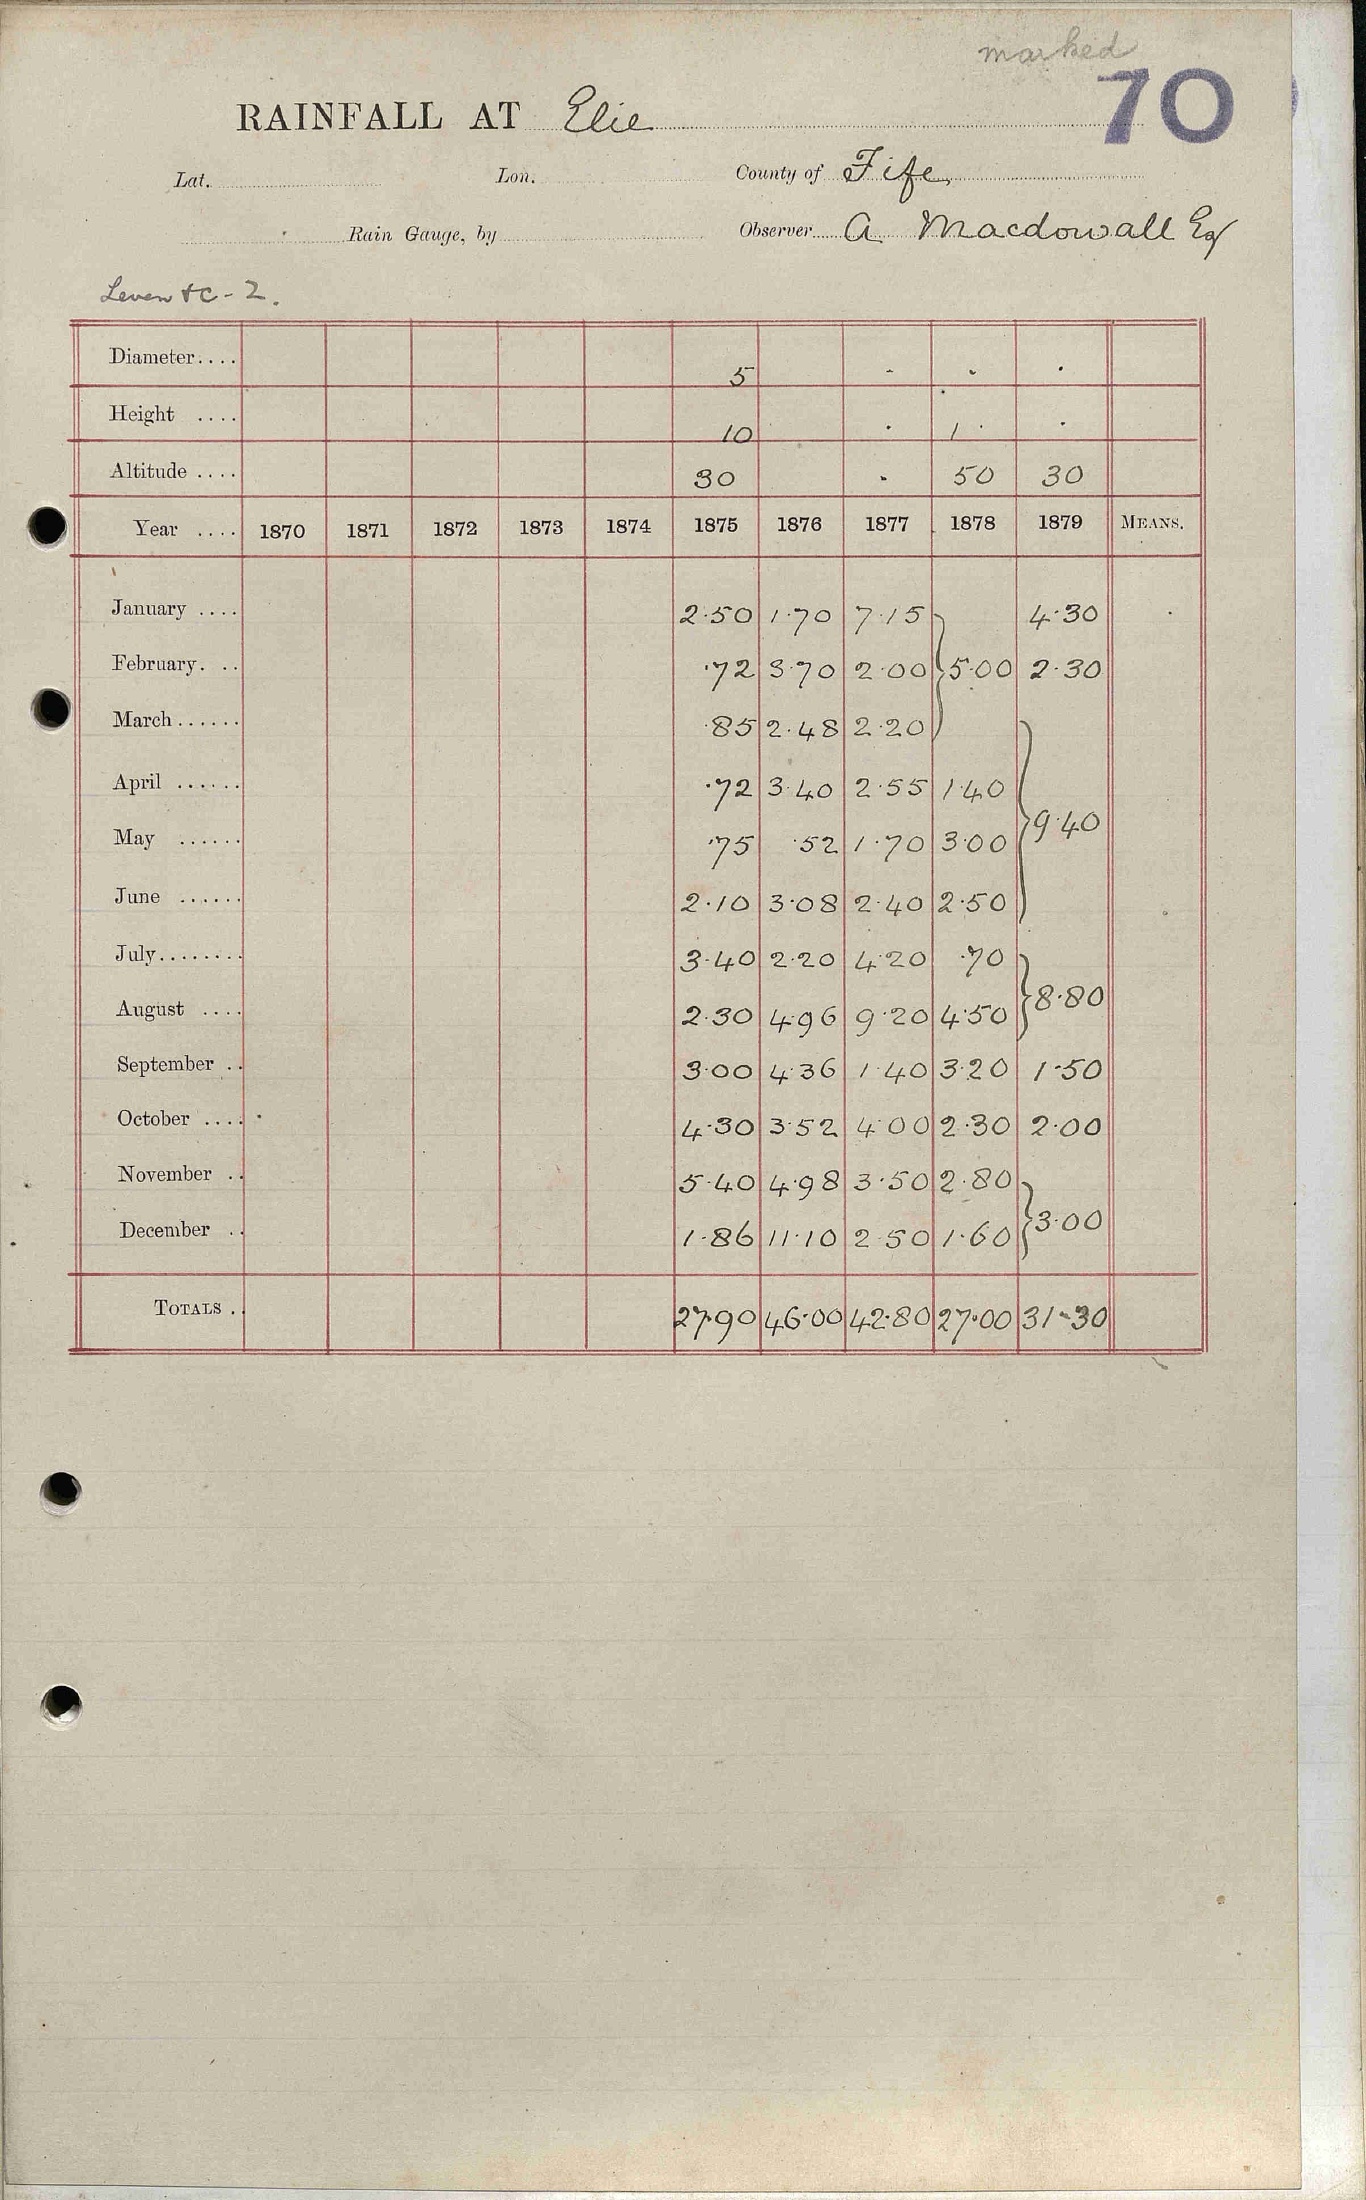 marked
70
RAINFALL AT Elie
Lat. Lon. County of Fife
Rain Gauge, by Observer A Macdowall Esq
Leven &c - 2.
Diameter.... 5
Height .... 10 1
Altitude .... 30 50 30
Year .... 1870 1871 1872 1873 1874 1875 1876 1877 1878 1879 MEANS.
January .... 2·50 1·70 7·15 4·30
February. .. ·72 3·70 2·00 5·00 2·30
March...... ·85 2·48 2·20
April ...... ·72 3·40 2·55 1·40
May ...... ·75 ·52 1·70 3·00 9·40
June ...... 2·10 3·08 2·40 2·50
July........ 3·40 2·20 4·20 ·70
August .... 2·30 4·96 9·20 4·50 8·80
September .. 3·00 4·36 1·40 3·20 1·50
October .... 4·30 3·52 4·00 2·30 2·00
November .. 5·40 4·98 3·50 2·80
December .. 1·86 11·10 2·50 1·60 3·00
TOTALS .. 27·90 46·00 42·80 27·00 31·30